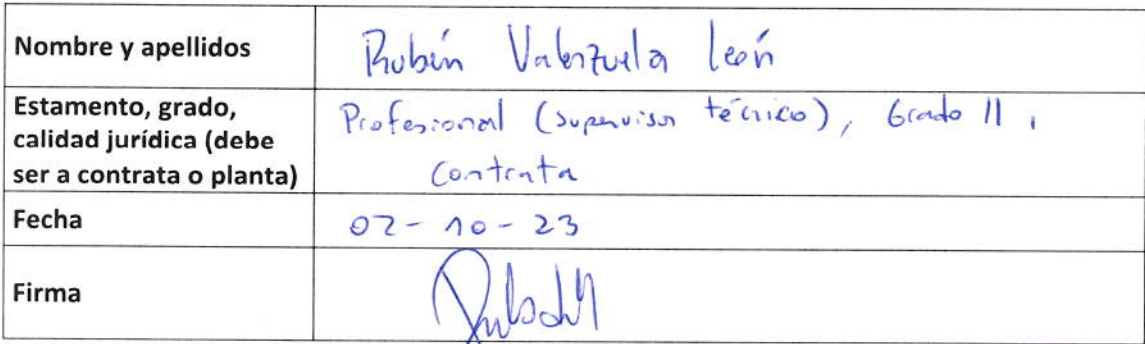 Nombre y apellidos
Rubén Valenzuela León
Estamento, grado,
calidad jurídica (debe
ser a contrata o planta)
Profesional (supervisor técnico), Grado 11,
Contrata
Fecha
02-10-23
Firma